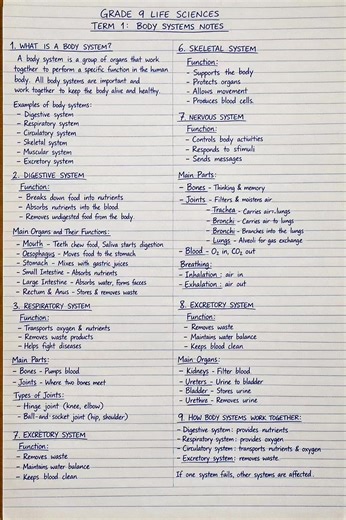 GRADE 9 LIFE SCIENCES
TERM 1: BODY SYSTEMS NOTES
1. WHAT IS A BODY SYSTEM?
A body system is a group of organs that work
together to perform a specific function in the human
body. All body systems are important and
work together to keep the body alive and healthy.
Examples of body systems:
- Digestive system
- Respiratory system
- Circulatory system
- Skeletal system
- Muscular system
- Excretory system
2. DIGESTIVE SYSTEM
Function:
- Breaks down food into nutrients
- Absorbs nutrients into the blood
- Removes undigested food from the body.
Main Organs and Their Functions:
- Mouth - Teeth chew food, Saliva starts digestion
- Oesophagus - Moves food to the stomach
- Stomach - Mixes with gastric juices
- Small Intestine - Absorbs nutrients
- Large Intestine - Absorbs water, forms faeces
- Rectum & Anus - Stores & removes waste
3. RESPIRATORY SYSTEM
Function:
- Transports oxygen & nutrients
- Removes waste products
- Helps fight diseases
Main Parts:
- Bones - Pumps blood
- Joints - Where two bones meet
Types of Joints:
- Hinge joint (knee, elbow)
- Ball-and socket joint (hip, shoulder)
7. EXCRETORY SYSTEM
Function:
- Removes waste
- Maintains water balance
- Keeps blood clean
6. SKELETAL SYSTEM
Function:
- Supports the body
- Protects organs
- Allows movement
- Produces blood cells.
7. NERVOUS SYSTEM
Function:
- Controls body activities
- Responds to stimuli
- Sends messages
Main Parts:
- Bones - Thinking & memory
- Joints - Filters & moistens air
- Trachea - Carries air→lungs
- Bronchi - Carries air to lungs
- Bronchi - Branches into the lungs
- Lungs - Alveoli for gas exchange
- Blood - O₂ in, CO₂ out
Breathing:
- Inhalation: air in
- Exhalation: air out
8. EXCRETORY SYSTEM
Function:
- Removes waste
- Maintains water balance
- Keeps blood clean
Main Organs:
- Kidneys - Filter blood
- Ureters - Urine to bladder
- Bladder - Stores urine
- Urethra - Removes urine
9. HOW BODY SYSTEMS WORK TOGETHER:
- Digestive system: provides nutrients
- Respiratory system: provides oxygen
- Circulatory system: transports nutrients & oxygen
- Excretory system: removes waste.
If one system fails, other systems are affected.